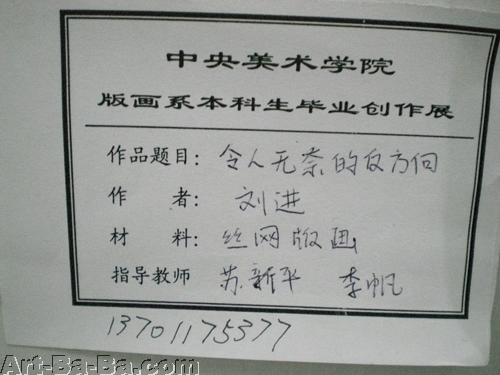 中央美术学院
版画系本科生毕业创作展
作品题目：令人无奈的反方向
作　　者：刘进
材　　料：丝网版画
指导教师　苏新平　李帆
13701175377
Art-Ba-Ba.com